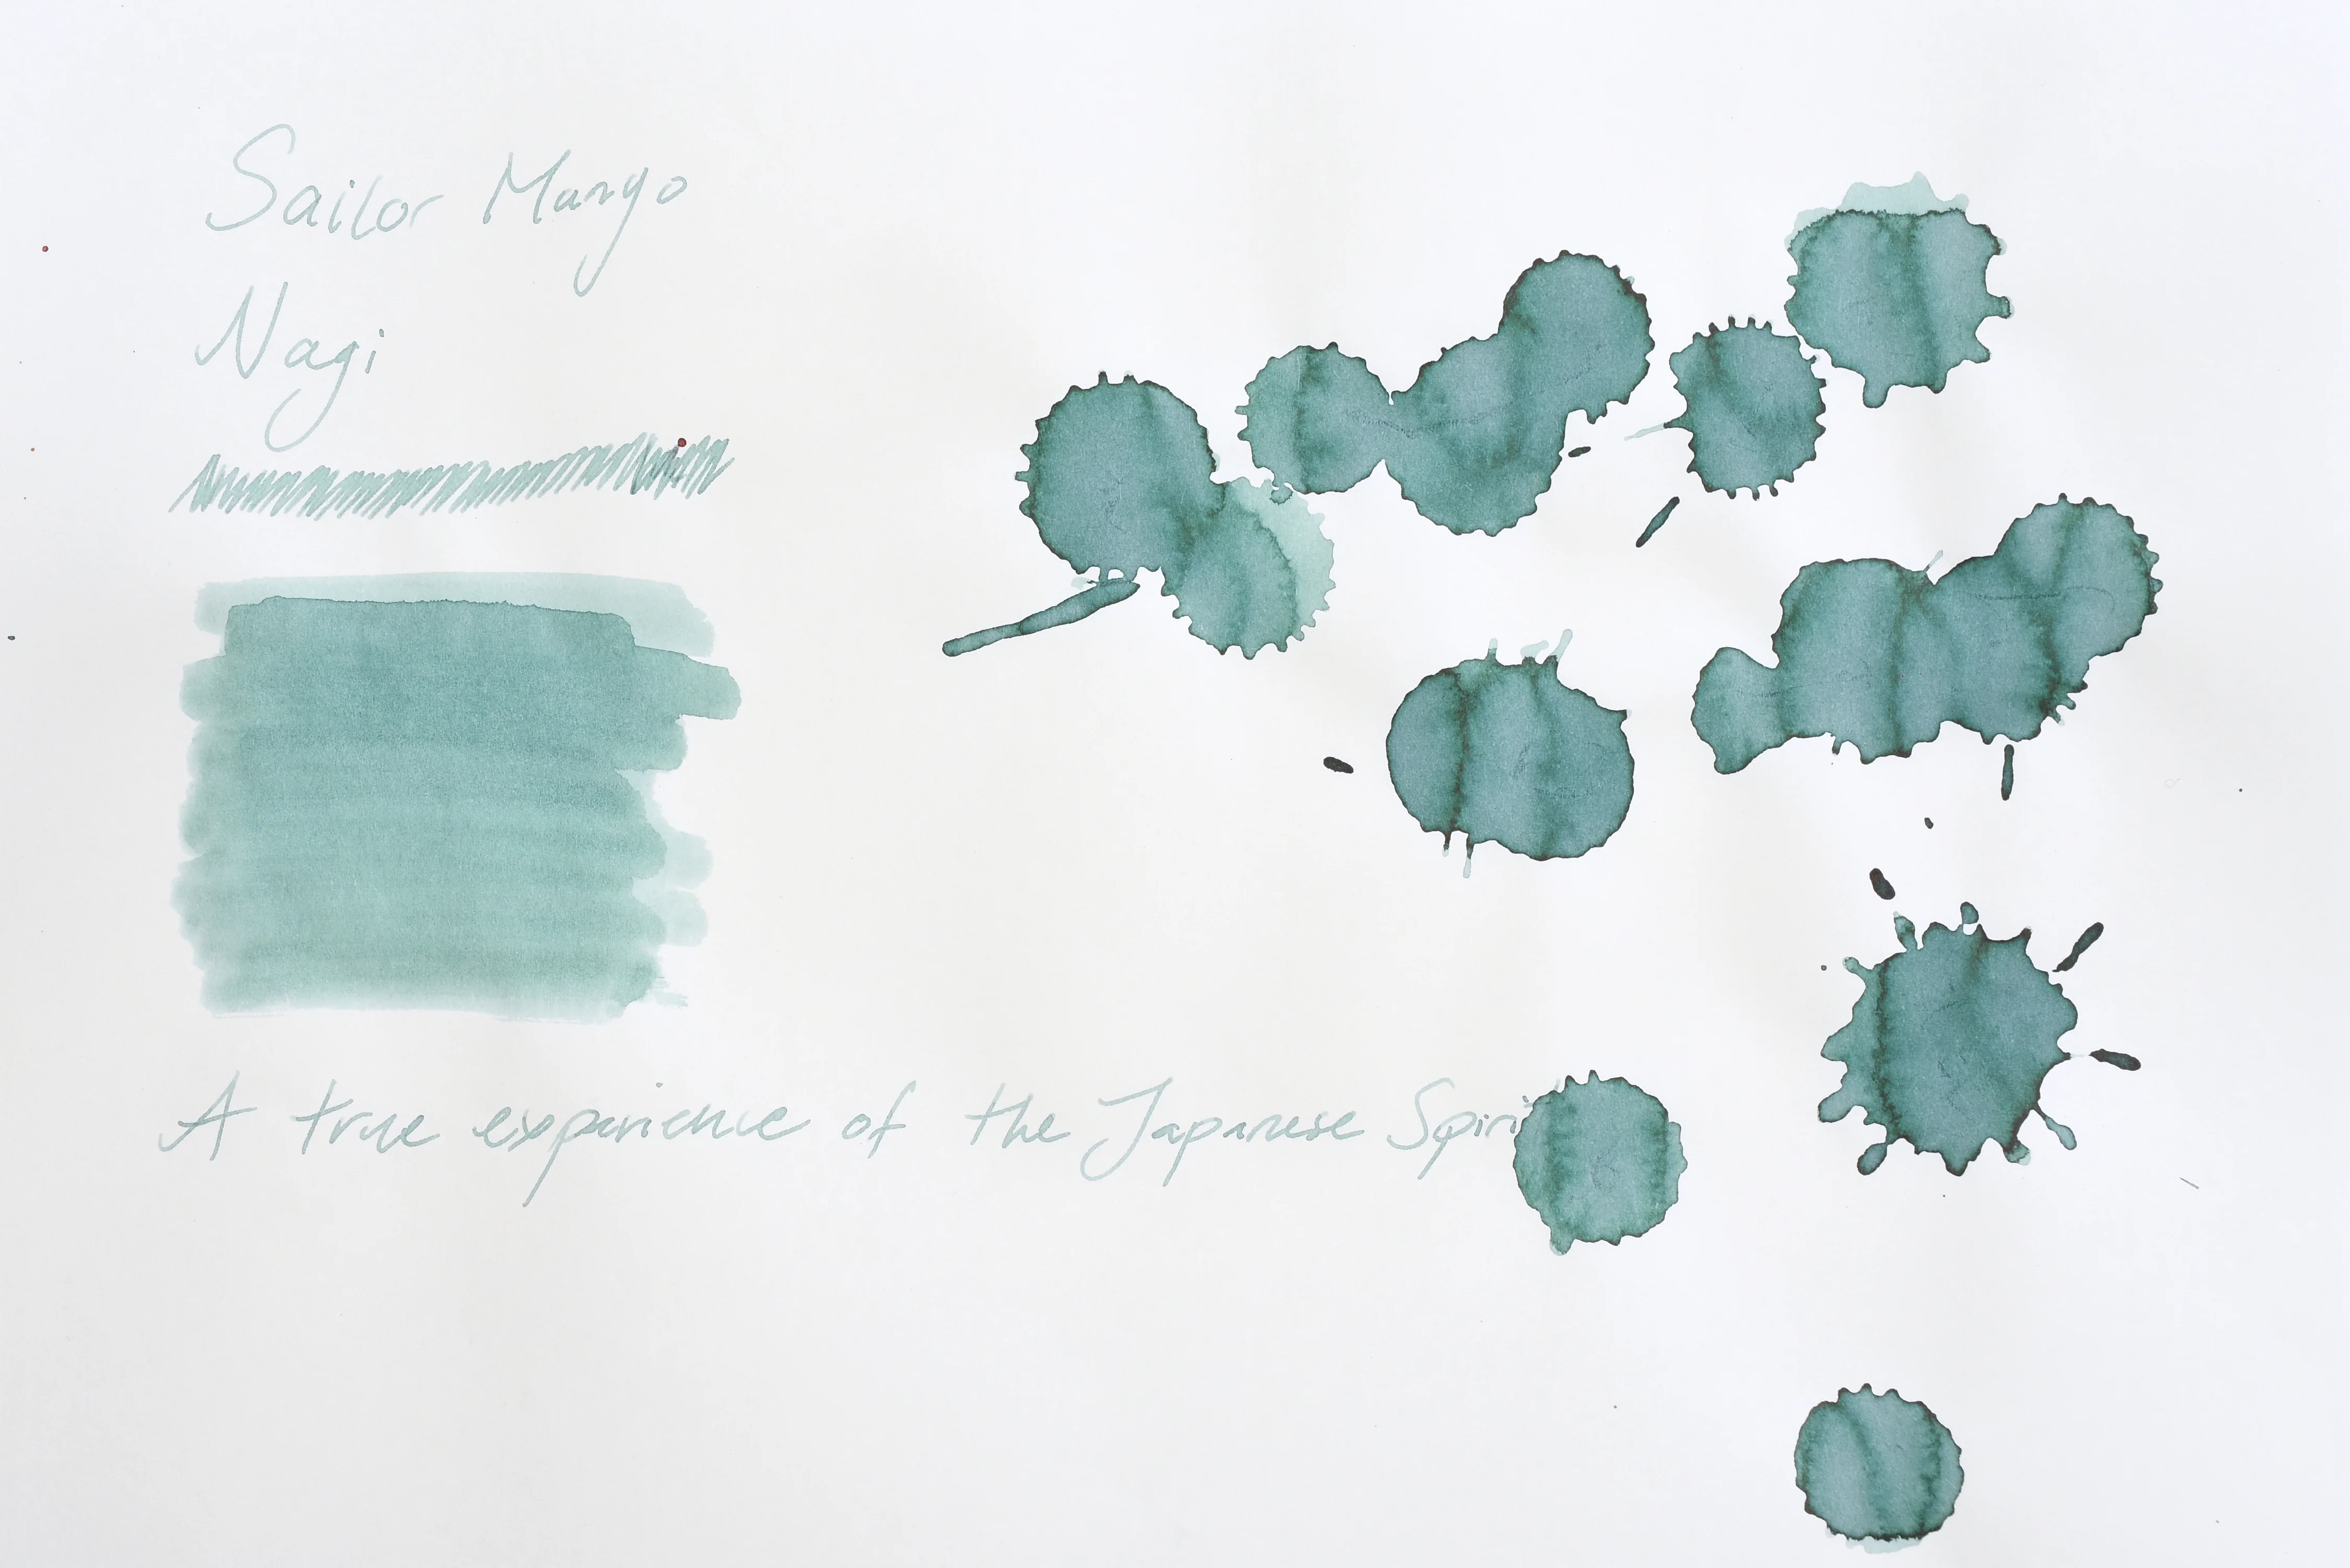 Sailor Manyo
Nagi
A true experience of the Japanese Spirit